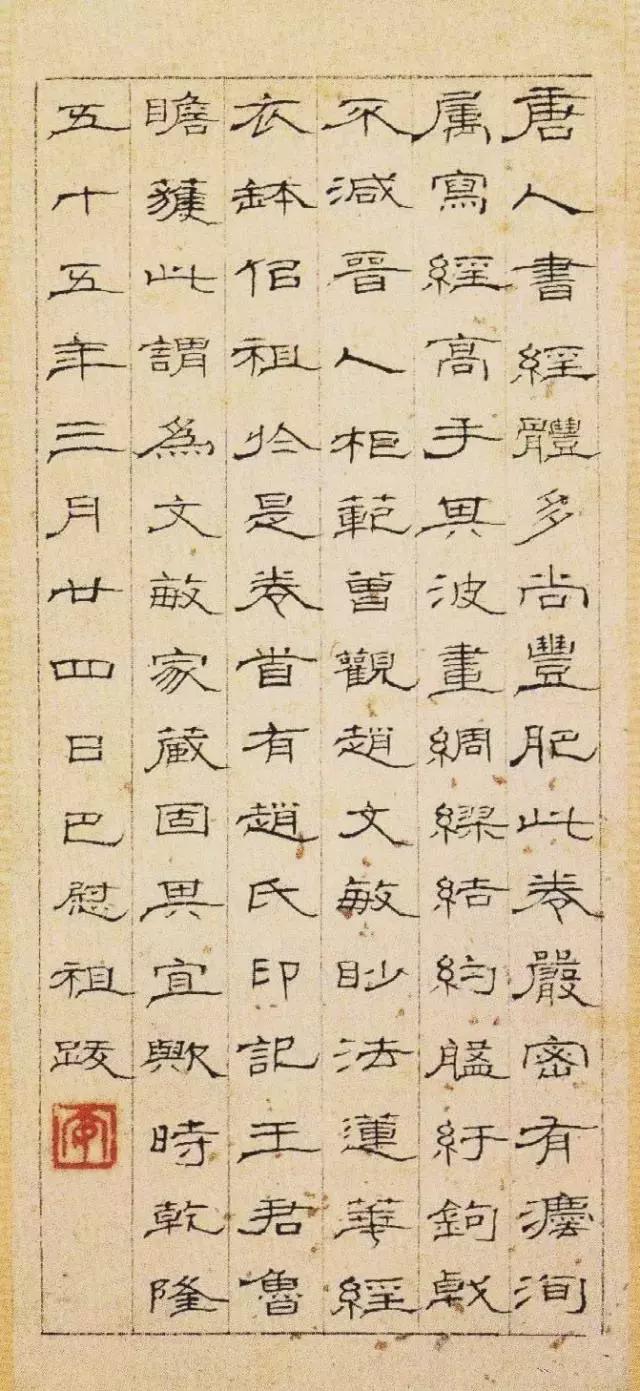 唐人書經體多尚豐肥此卷嚴密有灋洵
属寫經高手其波畫綢繆結約盤紆鉤戟
不減晉人柜範曾觀趙文敏眇法蓮華經
衣缽佀祖於是卷首有趙氏印記王君魯
瞻獲此謂為文敏家藏固其宜歟時乾隆
五十五年三月廿四日巴慰祖跋